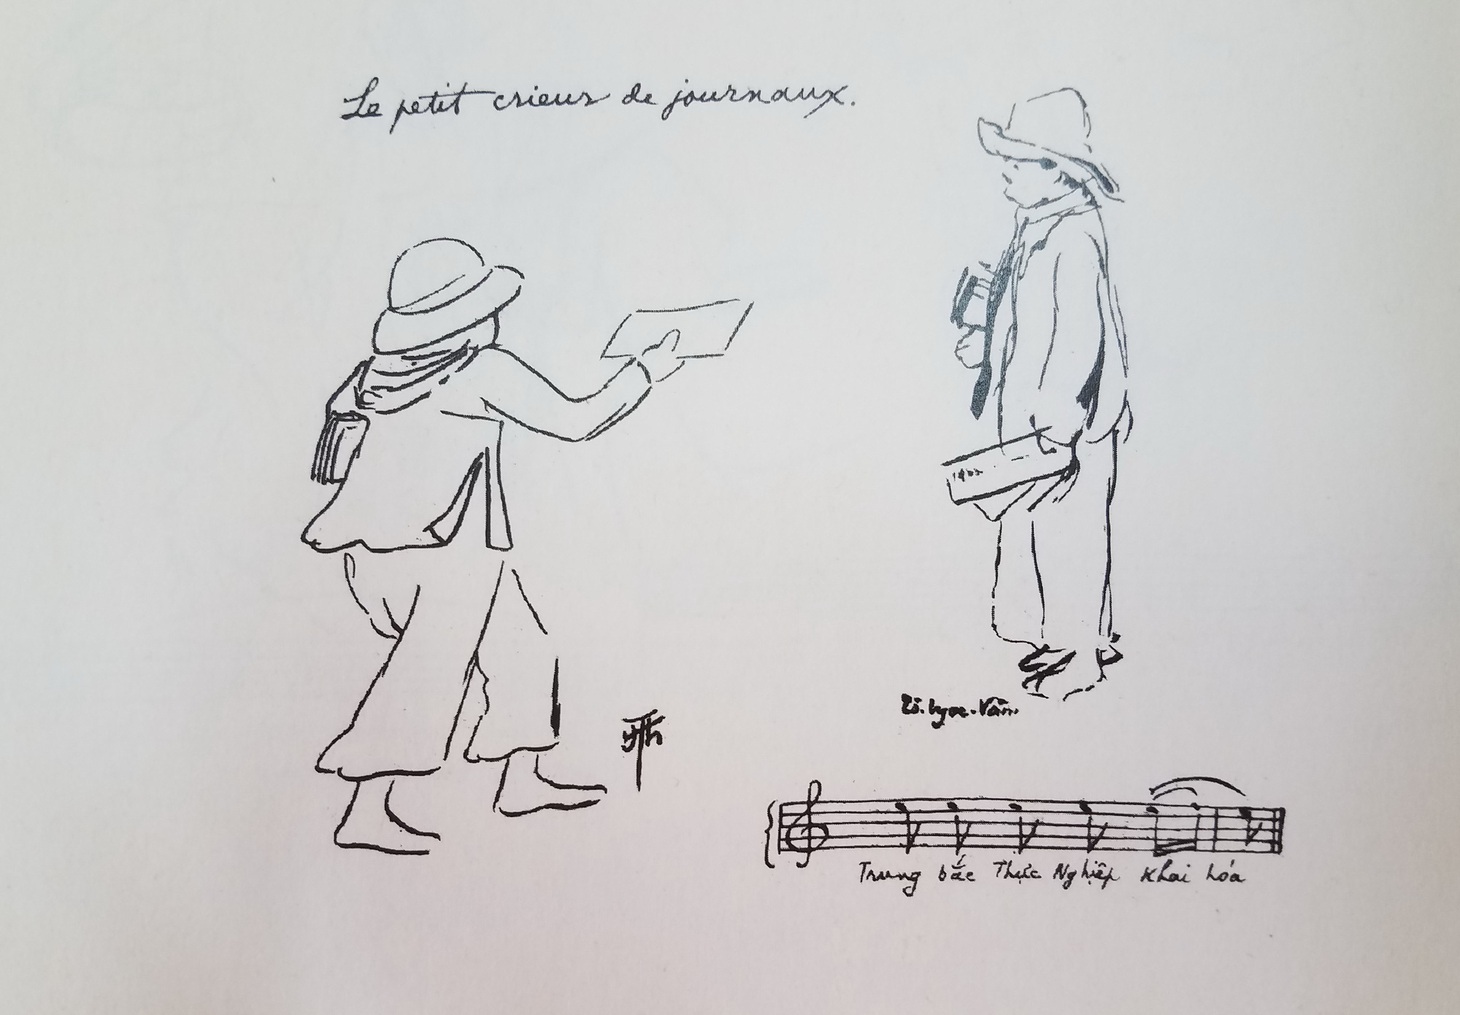 Le petit crieur de journaux.
Tô. Ngọc. Vân.
Trung bắc Thực Nghiệp Khai hóa